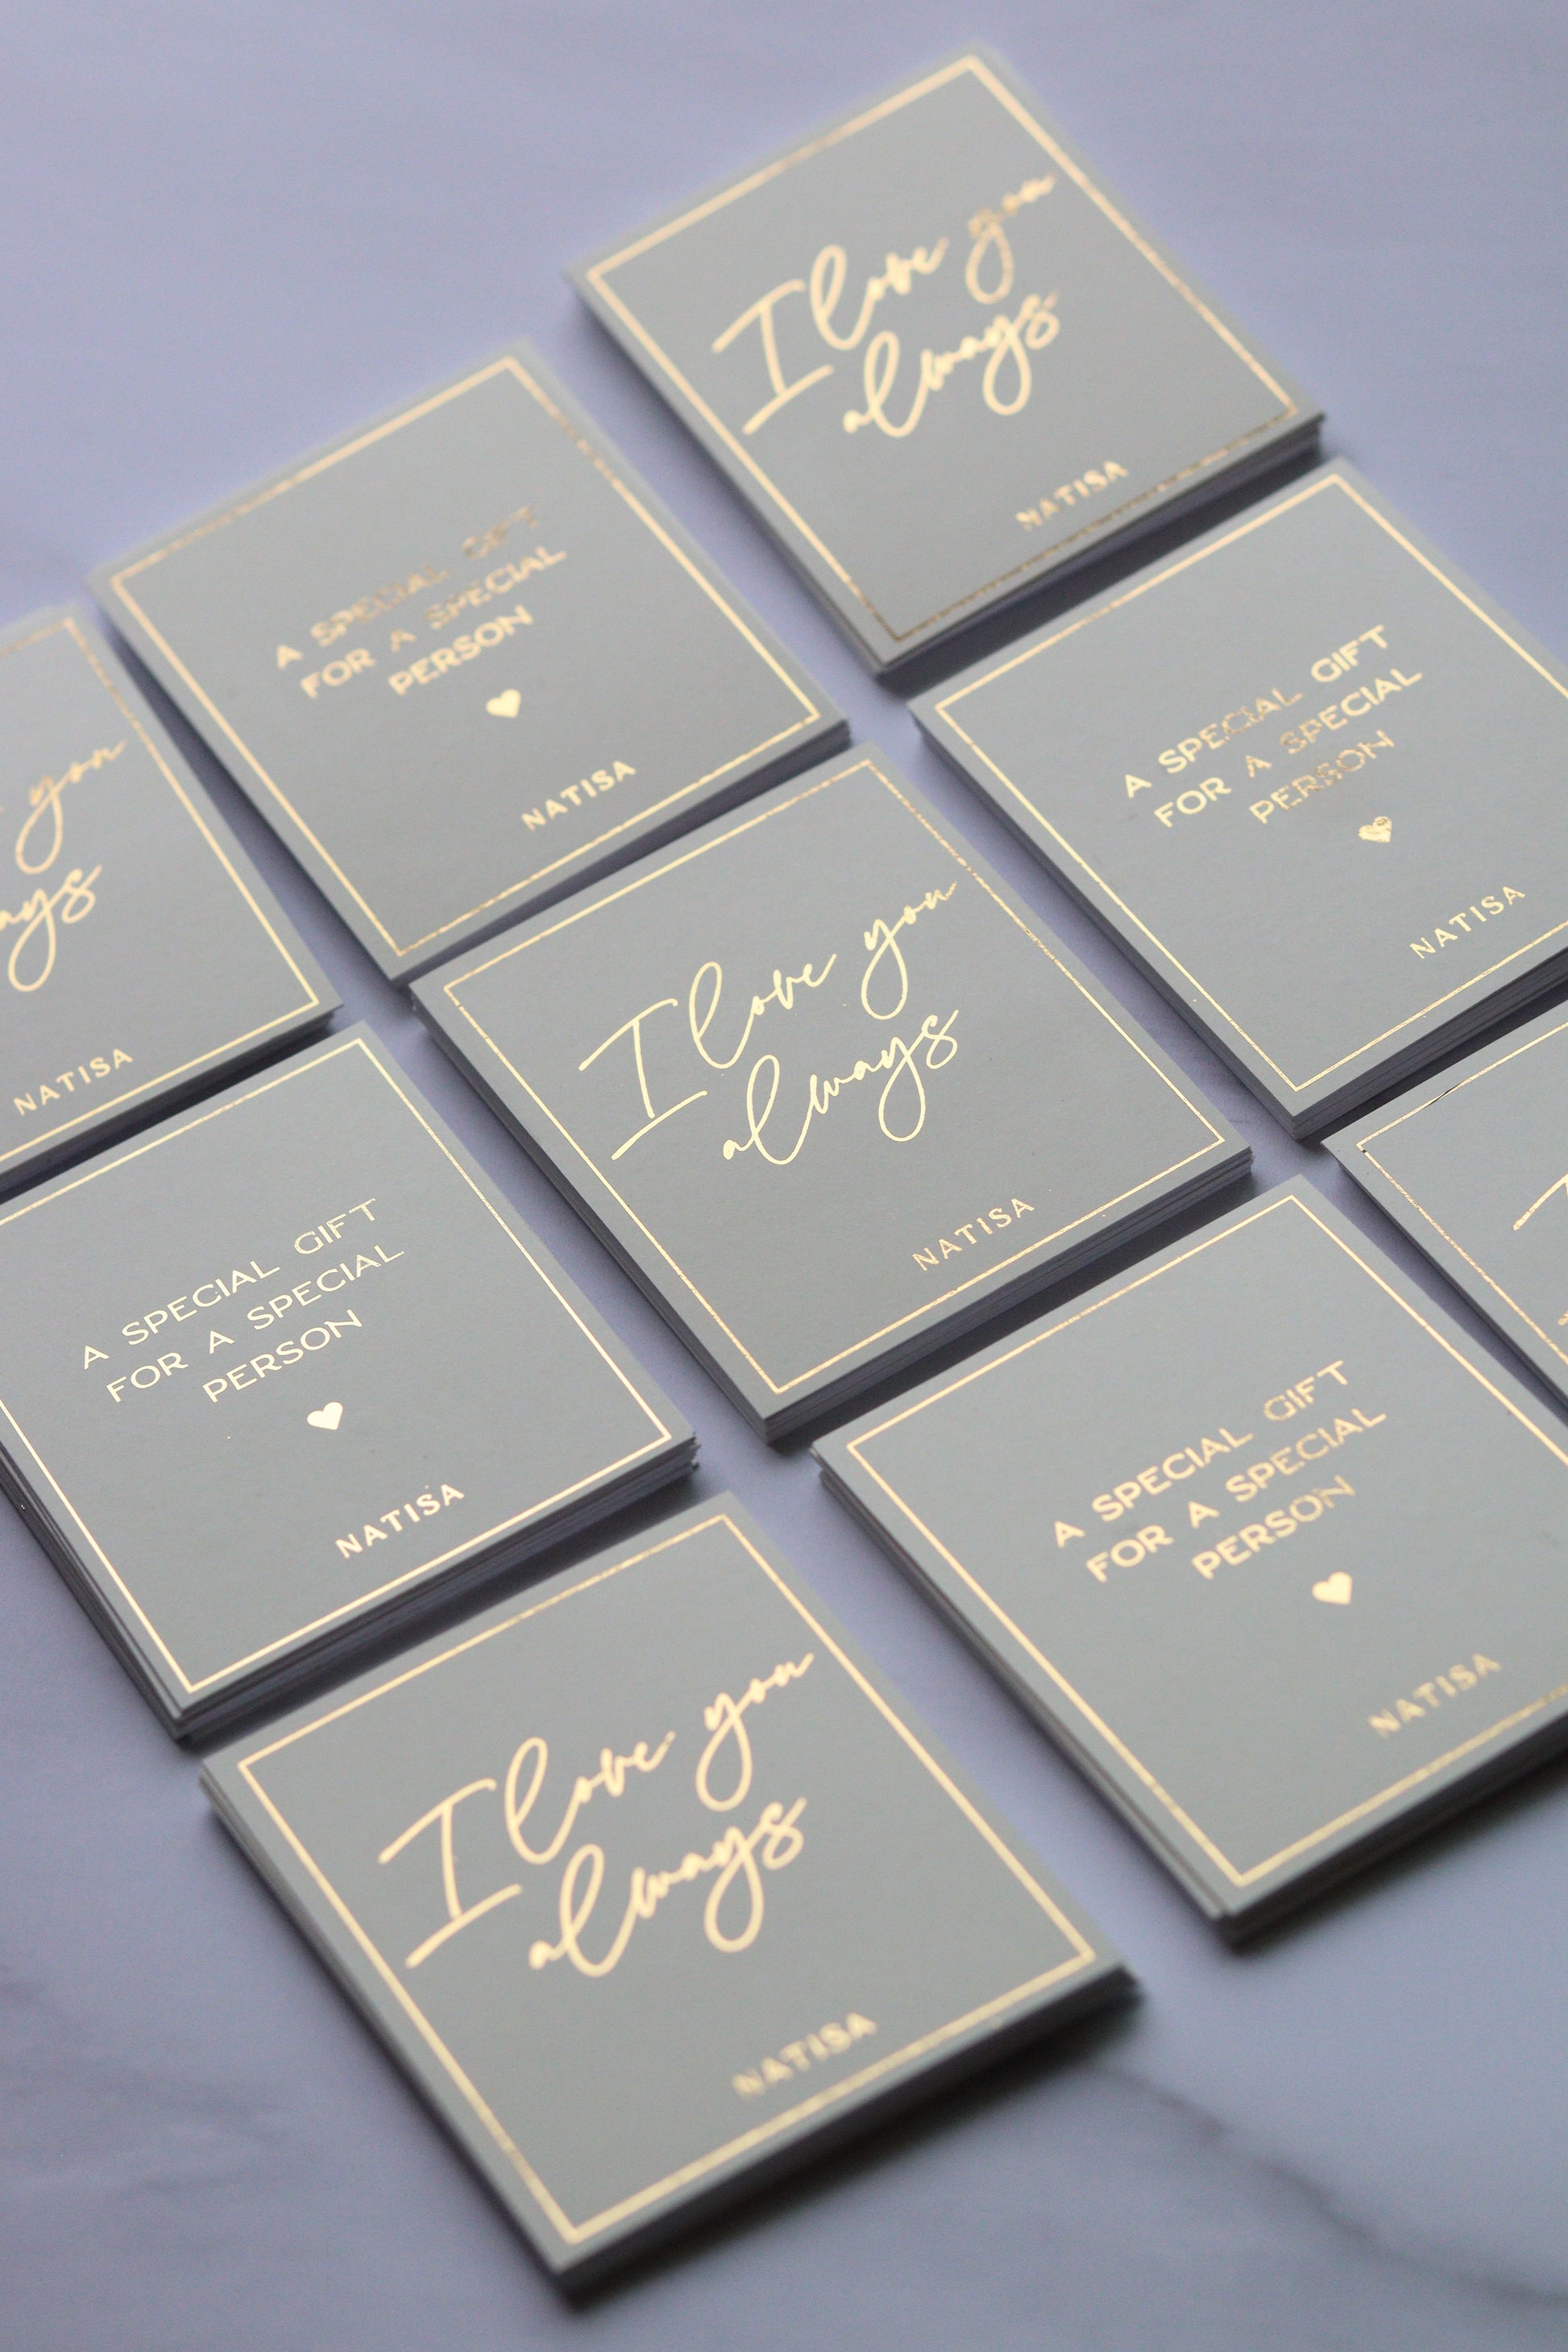 I love you
always
NATISA
A SPECIAL GIFT
FOR A SPECIAL
PERSON
NATISA
you
ays
NATISA
A SPECIAL GIFT
FOR A SPECIAL
PERSON
NATISA
I love you
always
NATISA
A SPECIAL GIFT
FOR A SPECIAL
PERSON
NATISA
A SPECIAL GIFT
FOR A SPECIAL
PERSON
NATISA
I love you
always
NATISA